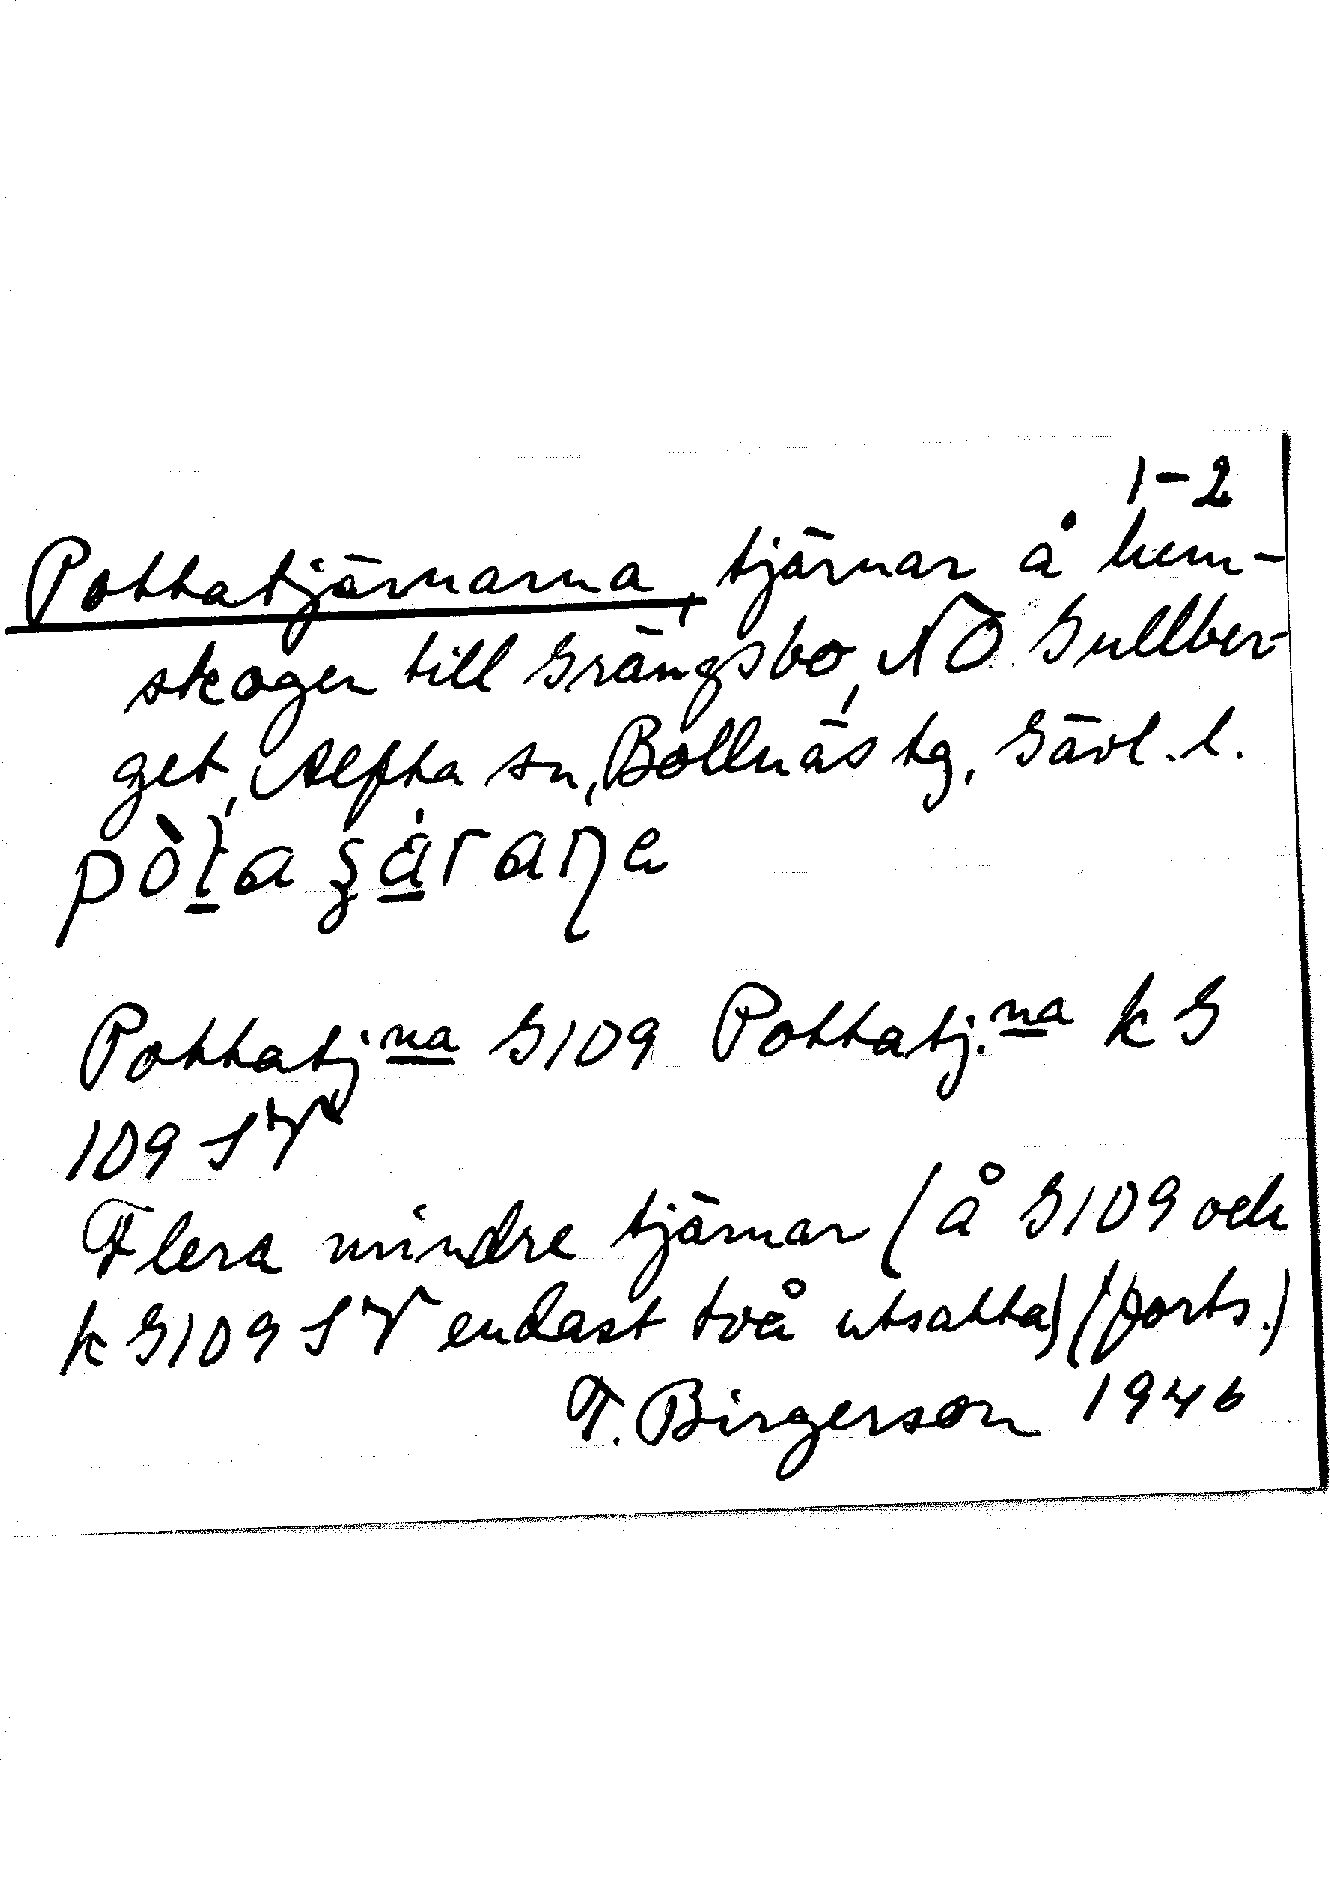 1-2
Pottatjärnarna, tjärnar å hem-
skogen till Grängsbo, NÖ Gullber-
get, Alfta sn, Bollnäs tg, Gävl. l.
Pottatjna G109 Pottatj.na k G
109 SV
Flera mindre tjärnar (å G109 och
k G109 SV endast två utsatta) (forts.)
T. Birgerson 1946